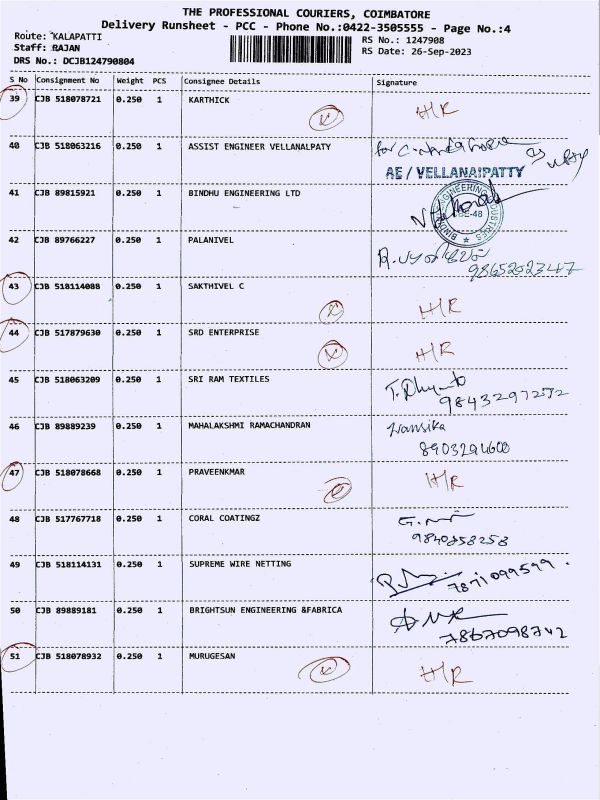 THE PROFESSIONAL COURIERS, COIMBATORE
Delivery Runsheet - PCC - Phone No.:0422-3505555 - Page No.:4
Route: KALAPATTI
RS No.: 1247908
Staff: RAJAN
RS Date: 26-Sep-2023
DRS No.: DCJB124790804
S No Consignment No Weight PCS Consignee Details Signature
39 CJB 518078721 0.250 1 KARTHICK H/R
40 CJB 518063216 0.250 1 ASSIST ENGINEER VELLANALPATY for
AE / VELLANAIPATTY
41 CJB 89815921 0.250 1 BINDHU ENGINEERING LTD
BINDHU ENGINEERING INDUSTRIES
CBE-48
42 CJB 89766227 0.250 1 PALANIVEL
98652023447
43 CJB 518114088 0.250 1 SAKTHIVEL C H/R
44 CJB 517879630 0.250 1 SRD ENTERPRISE H/R
45 CJB 518063209 0.250 1 SRI RAM TEXTILES
9843297252
46 CJB 89889239 0.250 1 MAHALAKSHMI RAMACHANDRAN Hansika
47 CJB 518078668 0.250 1 PRAVEENKMAR H/R
48 CJB 517767718 0.250 1 CORAL COATINGZ
9840858258
49 CJB 518114131 0.250 1 SUPREME WIRE NETTING
7871099599
50 CJB 89889181 0.250 1 BRIGHTSUN ENGINEERING &FABRICA
7867098742
51 CJB 518078932 0.250 1 MURUGESAN H/R